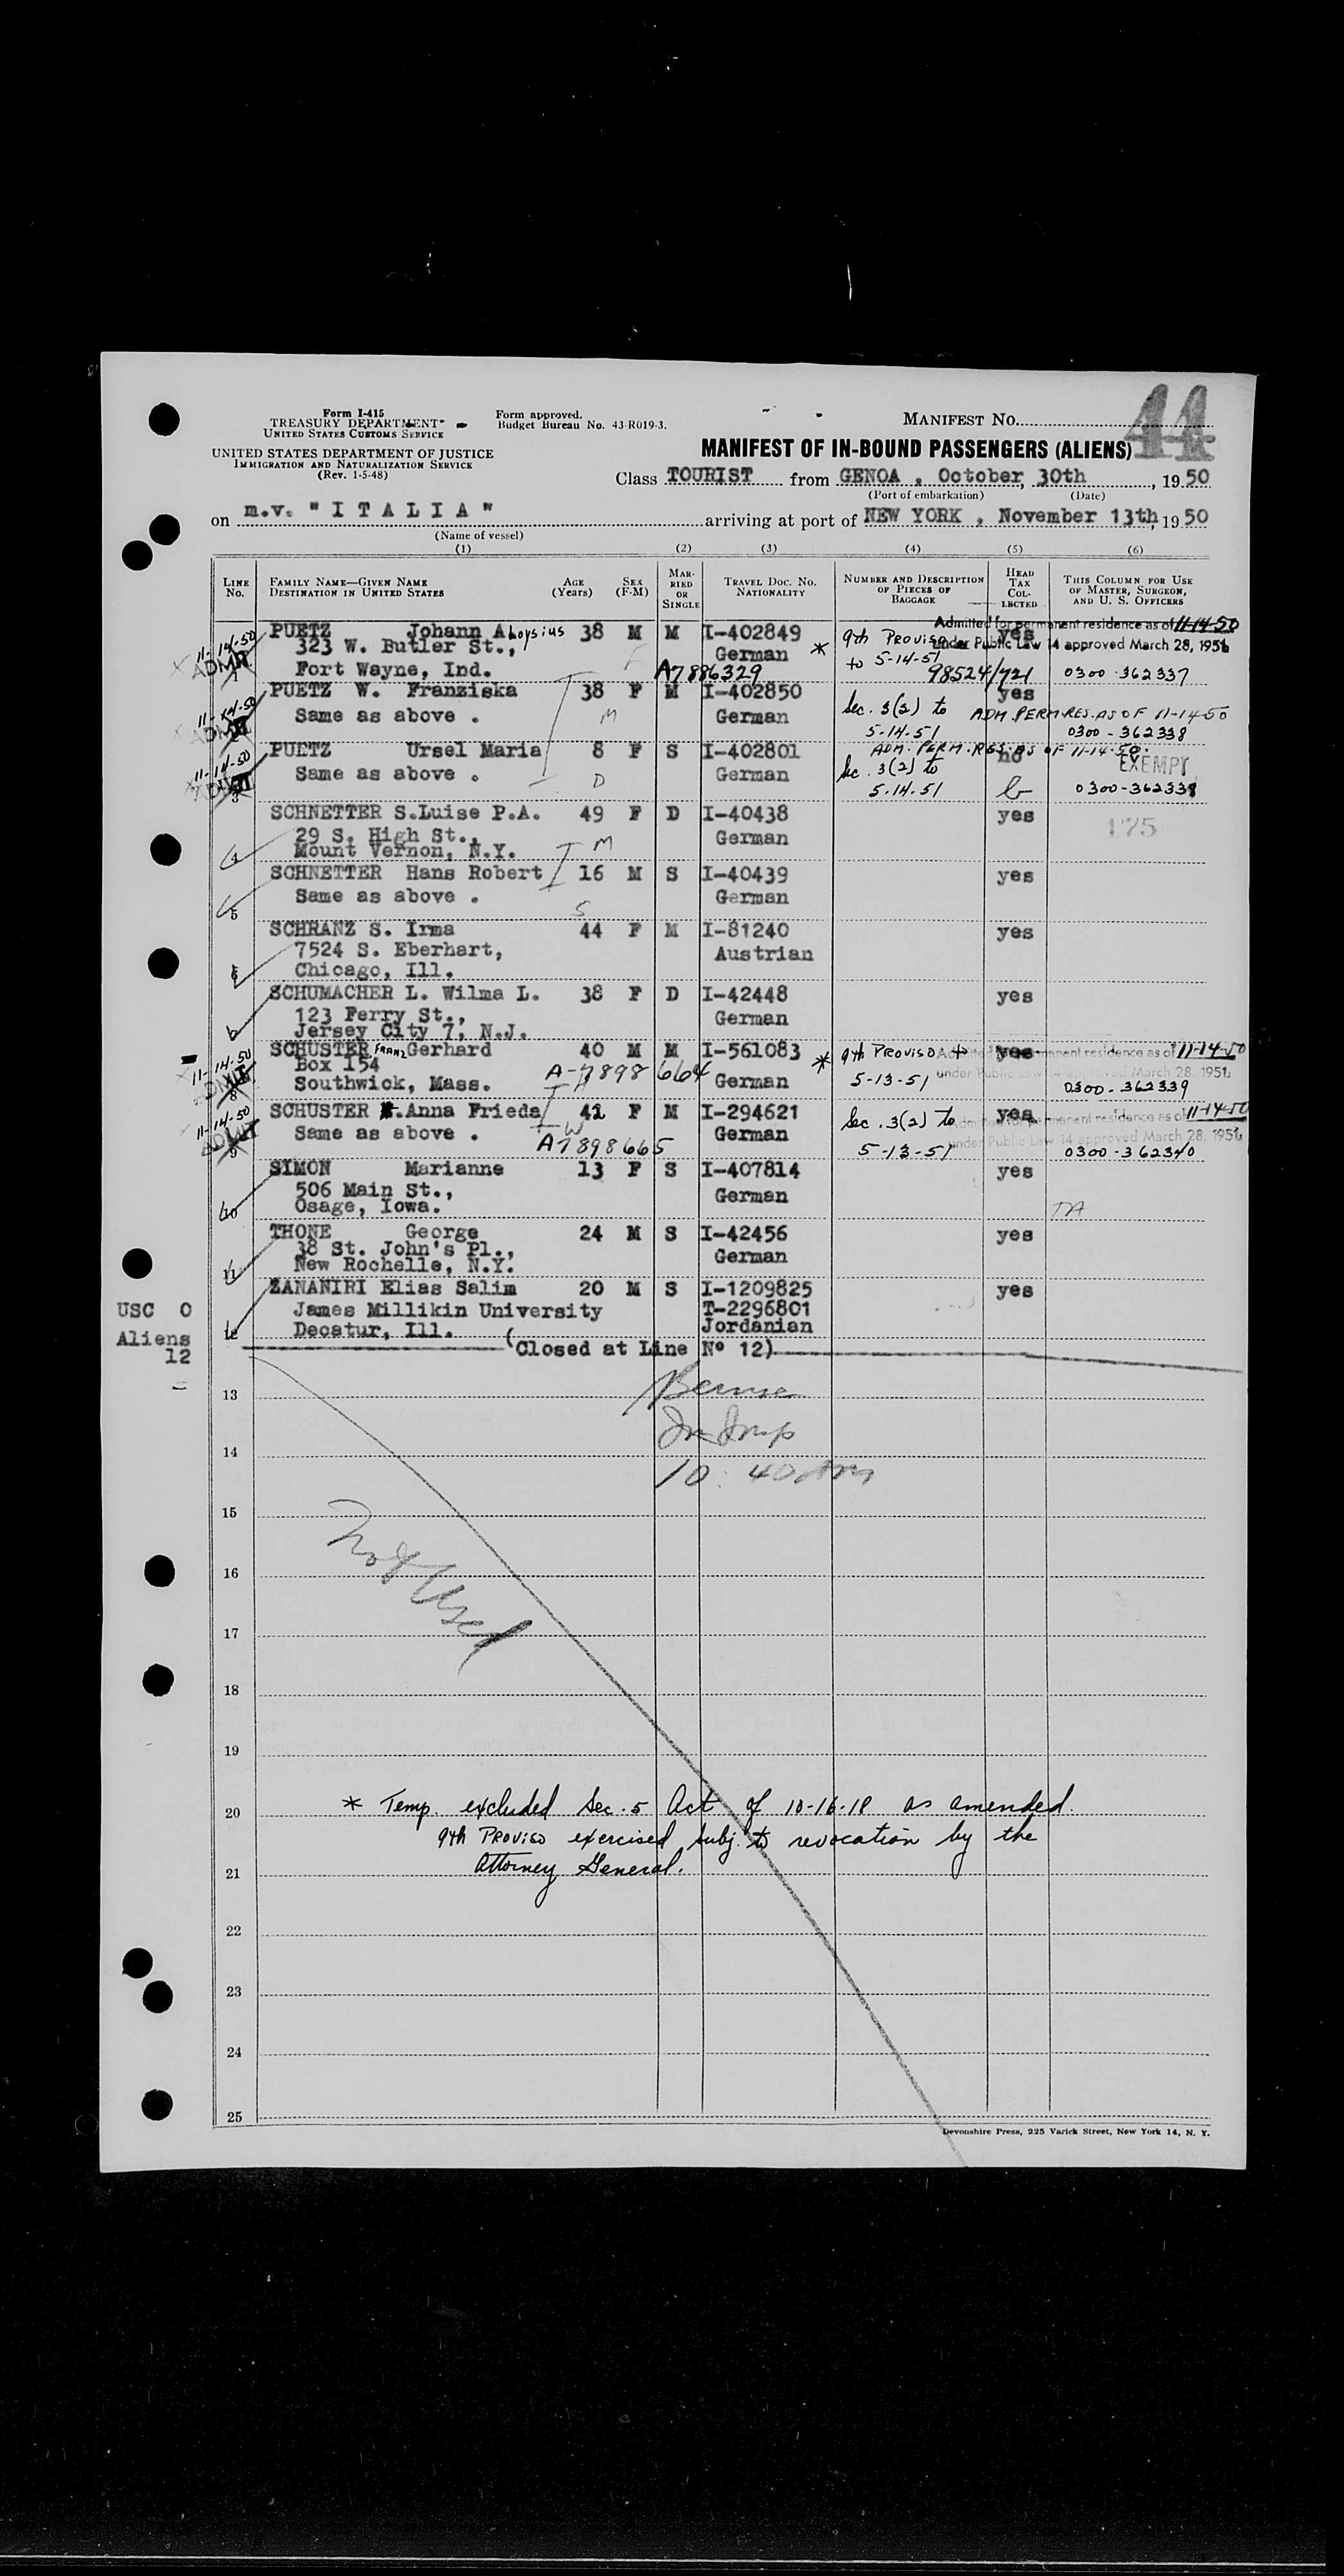 44
Form I-415
TREASURY DEPARTMENT
UNITED STATES CUSTOMS SERVICE
Form approved.
Budget Bureau No. 43-R019-3.
MANIFEST NO.
UNITED STATES DEPARTMENT OF JUSTICE
IMMIGRATION AND NATURALIZATION SERVICE
(Rev. 1-5-48)
MANIFEST OF IN-BOUND PASSENGERS (ALIENS)
Class TOURIST from GENOA , October, 30th , 19 50
(Port of embarkation) (Date)
on m.v. "I T A L I A" arriving at port of NEW YORK , November 13th, 19 50
(Name of vessel)
(1) (2) (3) (4) (5) (6)
LINE NO. FAMILY NAME—GIVEN NAME DESTINATION IN UNITED STATES AGE (YEARS) SEX (F-M) MARRIED OR SINGLE TRAVEL DOC. NO. NATIONALITY NUMBER AND DESCRIPTION OF PIECES OF BAGGAGE HEAD TAX COLLECTED THIS COLUMN FOR USE OF MASTER, SURGEON, AND U. S. OFFICERS
Admitted for permanent residence as of 11-14-50
under Public Law 14 approved March 28, 1951
11-14-50 PUETZ Johann Aloysius 38 M M I-402849 9th Proviso yes
323 W. Butler St., German * to 5-14-51
ADMIT 1 Fort Wayne, Ind. A7886329 98524/721 0300-362337
11-14-50 PUETZ W. Franziska 38 F M I-402850 Sec. 3(2) to yes
Same as above . M German ADM PERM RES. AS OF 11-14-50
5-14-51 0300-362338
11-14-50 PUETZ Ursel Maria 8 F S I-402801 ADM. PERM. RES. AS OF 11-14-50. no
Same as above . D German Sec. 3(2) to EXEMPT
3 5.14.51 0300-362338
SCHNETTER S.Luise P.A. 49 F D I-40438 yes
29 S. High St., M German 175
4 Mount Vernon, N.Y.
SCHNETTER Hans Robert 16 M S I-40439 yes
Same as above . German
5 S
SCHRANZ S. Irma 44 F M I-81240 yes
7524 S. Eberhart, Austrian
6 Chicago, Ill.
SCHUMACHER L. Wilma L. 38 F D I-42448 yes
123 Ferry St., German
Jersey City 7, N.J.
11-14-50 SCHUSTER FRANZ Gerhard 40 M M I-561083 * 9th Proviso to yes Admitted for permanent residence as of 11-14-50
Box 154 A-7898664 under Public Law 14 approved March 28, 1951.
8 Southwick, Mass. German 5-13-51 0300-362339
11-14-50 SCHUSTER .Anna Frieda 42 F M I-294621 Sec. 3(2) to yes Admitted for permanent residence as of 11-14-50
ADMIT Same as above . W German under Public Law 14 approved March 28, 1951
9 A7898665 5-13-51 0300-362340
SIMON Marianne 13 F S I-407814 yes
506 Main St., German
10 Osage, Iowa.
THONE George 24 M S I-42456 yes
38 St. John's Pl., German
11 New Rochelle, N.Y.
ZANANIRI Elias Salim 20 M S I-1209825 yes
USC 0 James Millikin University T-2296801
Aliens 12 Decatur, Ill. Jordanian
12 (Closed at Line Nº 12)
13
14
10:40 AM
15
Not Used
16
17
18
19
20 * Temp. excluded Sec. 5 Act of 10-16-18 as amended.
9th Proviso exercised subj. to revocation by the
21 Attorney General.
22
23
24
25
Devonshire Press, 225 Varick Street, New York 14, N. Y.